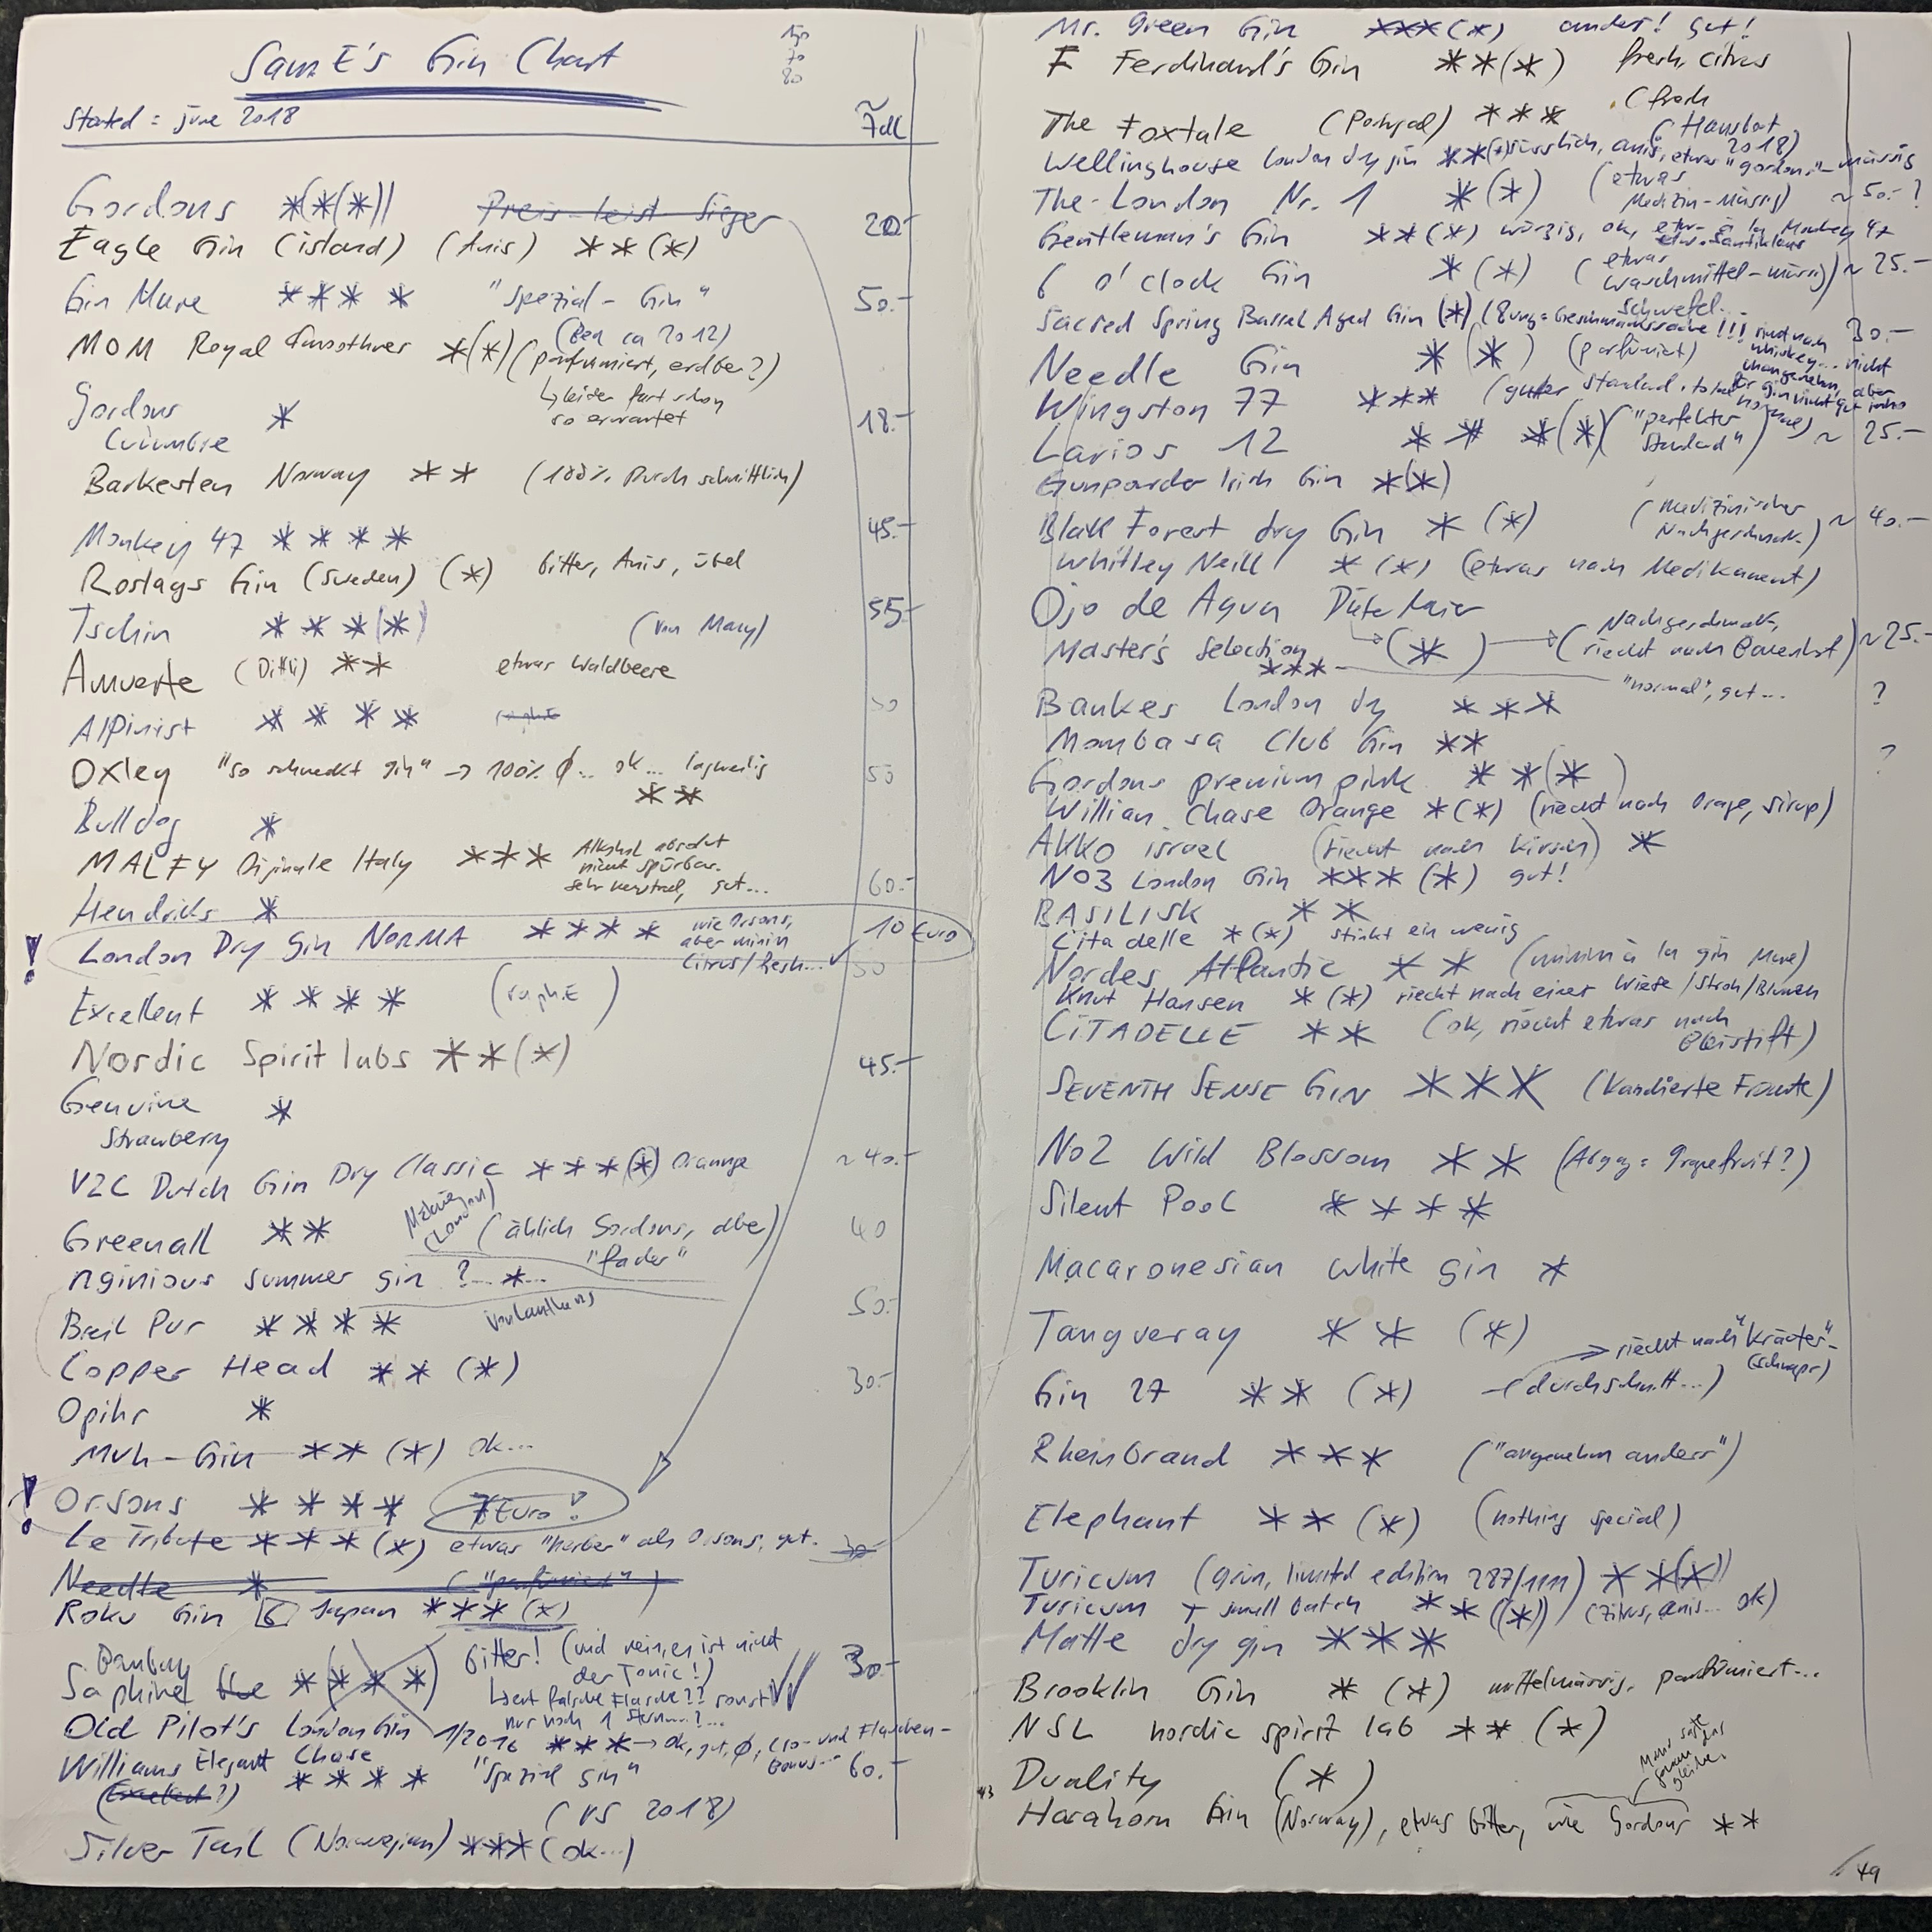 SamE's Gin Chart
Started: june 2018
~ 7dl
Gordons *(*(*)) Preis-leist-Sieger 20.-
Eagle Gin (island) (Anis) **(*)
Gin Mare **** "Spezial-Gin" 50.-
(Ben ca 2012)
MOM Royal Smoothner *(*) (parfümiert, erdber?)
↳ leider fast schon
so erwartet
Gordons * 18.-
Cucumbre
Barkesten Norway ** (100% Durchschnittlich)
Monkey 47 **** 45.-
Roslags Gin (Sweden) (*) bitter, Anis, übel
Tschin ***(*) (von Mary) 55.-
Amuerte (Ditti) ** etwas Waldbeere
Alpinist **** 50
Oxley "so schmeckt gin" → 100% Ø... ok... langweilig 50
**
Bulldog *
MALFY Originale Italy *** Alkohol absolut
nicht spürbar.
sehr neutral, gut...
Hendricks * 60.-
! London Dry Gin NORMA **** wie Orsons, 10 Euro
aber minim
Citrus/fresh... 50
Excellent **** (raph.E)
Nordic Spirit labs **(*) 45.-
Genuine *
Strawbery
V2C Dutch Gin Dry Classic ***(*) Orannge ~40.-
Greenall ** (ählich Gordons, aber) 40
"fader"
nginious summer gin ? *...
Breil Pur **** 50.-
Copper Head **(*) 30.-
Opihr *
Muh-Gin **(*) ok...
! Orsons **** 7 Euro!
Le Tribute ***(*) etwas "herber" als Orsons, gut. 30
Needle * ("parfümiert")
Roku Gin 6 Japan ***(*)
Bombay bitter! (und nein, es ist nicht
der Tonic!) 30.-
Saphire *(***)
↳ evt falsche Flasche?? sonst
nur noch 1 Stern...?...
Old Pilot's London Gin 1/2016 *** → ok, gut, Ø, Cro- und Flaschen-
bonus...
Williams Elegant Chase **** "Spezial Gin" 60.-
(Excellent?)
(VS 2018)
Silver Tail (Norwegian) *** (ok...)
Mr. Green Gin ***(*) anders! gut!
F Ferdinand's Gin **(*) fresh, citrus
The Foxtale (Portugal) ***
Wellinghouse London dry gin **(*) süsslich, anis, etwas "gordons"-mässig
The London Nr. 1 *(*) (etwas
Medizin-mässig) ~50.-?
Gentleman's Gin **(*) würzig, ok, etw. à la Monkey 47
6 o'clock Gin *(*) (etwas
waschmittel-mässig) ~25.-
schwefel...
Sacred Spring Barrel Aged Gin (*) (8ung = Geschmackssache!!! riecht nach 30.-
whiskey... nicht
unangenehm, aber
für gin nicht gut imho
Needle Gin *(*) (parfümiert)
Wingston 77 *** (guter Standard, total normal)
Larios 12 ***(*) ("perfekter
Standard") ~25.-
Gunpowder Irish Gin *(*)
Black Forest dry Gin *(*) (Medizinischer
Nachgeschmack) ~40.-
Whitley Neill *(*) (etwas nach Medikament)
Ojo de Agua Dieter Meier
→ (*) → (Nachgeschmack,
riecht nach Bauernhof) ~25.-
Master's Selection
*** "normal", gut...
Bankes London dry *** ?
Mombasa Club Gin **
Gordons premium pink **(*) ?
Willian Chase Orange *(*) (riecht nach Orage, sirup)
AKKO israel (riecht nach Kirsch) *
NO3 London Gin ***(*) gut!
BASILISK **
Citadelle *(*) stinkt ein wenig
Nordes Atlantic ** (minim à la gin Mare)
Knut Hansen *(*) riecht nach einer Wiese/Stroh/Blumen
CITADELLE ** (ok, riecht etwas nach
Bleistift)
SEVENTH SENSE GIN *** (Kandierte Früchte)
No2 Wild Blossom ** (Abgang = Grapefruit?)
Silent Pool ****
Macaronesian white gin *
Tanqueray **(*)
→ riecht nach "Kräuter"-
(schnaps)
Gin 27 **(*) (durchschnitt...)
Rheinbrand *** ("angenehm anders")
Elephant **(*) (nothing special)
Turicum (grün, limited edition 287/1111) **(*)
Turicum + small batch **((*)) (Zitrus, anis... ok)
Matte dry gin ***
Brooklin Gin *(*) mittelmässig, parfümiert...
NSL nordic spirit lab **(*)
Duality (*)
43
Harahorn Gin (Norway), etwas bitter, wie Gordons **
49